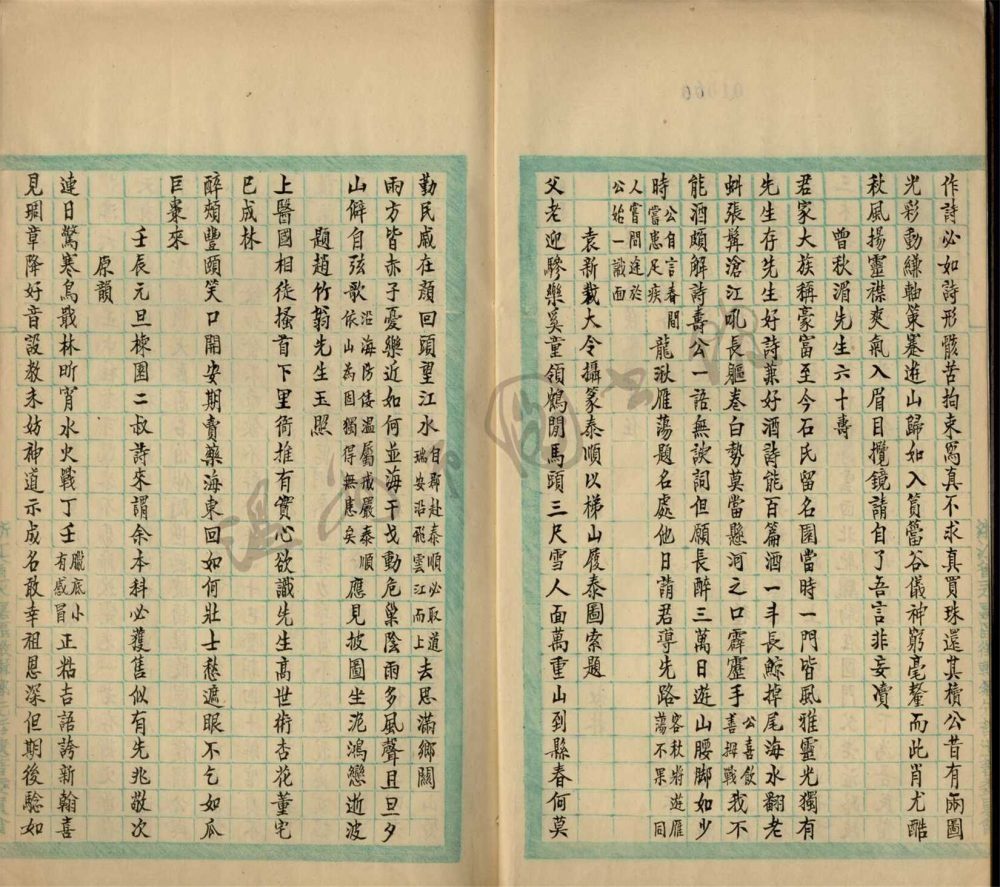 作詩必如詩形骸苦拘束寫真不求真買珠還其櫝公昔有兩圖
光彩動縑軸策蹇遊山歸如入篔簹谷儀神窮毫釐而此肖尤酷
秋風揚靈襟爽氣入眉目攬鏡請自了吾言非妄瀆
曾秋湄先生六十壽
君家大族稱豪富至今石氏留名園當時一門皆風雅靈光獨有
先生存先生好詩兼好酒詩能百篇酒一斗長鯨掉尾海水翻老
蚪張髯滄江吼長軀卷白勢莫當懸河之口霹靂手公喜飲善拇戰我不
能酒頗解詩壽公一語無諛詞但願長醉三萬日遊山腰脚如少
時公自言春間嘗患足疾龍湫雁蕩題名處他日請君導先路客秋將遊雁蕩不果同
人嘗間遠於公始一識面
袁新裁大令攝篆泰順以梯山履泰圖索題
父老迎驂樂奚童領鶴閒馬頭三尺雪人面萬重山到縣春何莫
勤民慼在顏回頭望江水自郡赴泰順必取道瑞安沿飛雲江而上去思滿鄉關
雨方皆赤子憂樂近如何並海干戈動危巢陰雨多風聲且旦夕
山僻自弦歌沿海防倭溫屬戒嚴泰順依山為固獨得無恙矣應見披圖坐洮鴻戀逝波
題趙竹翁先生玉照
上醫國相徒搔首下里衙推有實心欲識先生高世術杏花董宅
已成林
醉頰豐頤笑口開安期賣藥海東回如何壯士愁遮眼不乞如瓜
巨棗來
壬辰元旦楝園二叔詩來謂余本科必獲售似有先兆敬次
原韻
連日驚寒鳥戢林昕宵水火戰丁壬臘底小有感冒正粘吉語誇新翰喜
見琱章降好音設教未妨神道示成名敢幸祖恩深但期後驗如